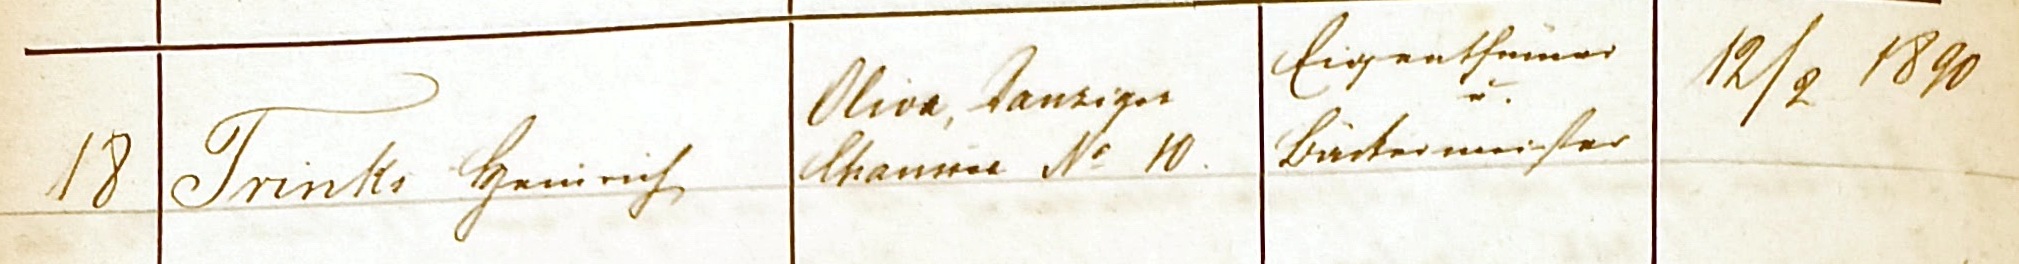 18 Trinks Heinrich
Oliva, Danziger
Chaussee No 10.
Eigenthümer
u.
Bäckermeister
12/2 1890